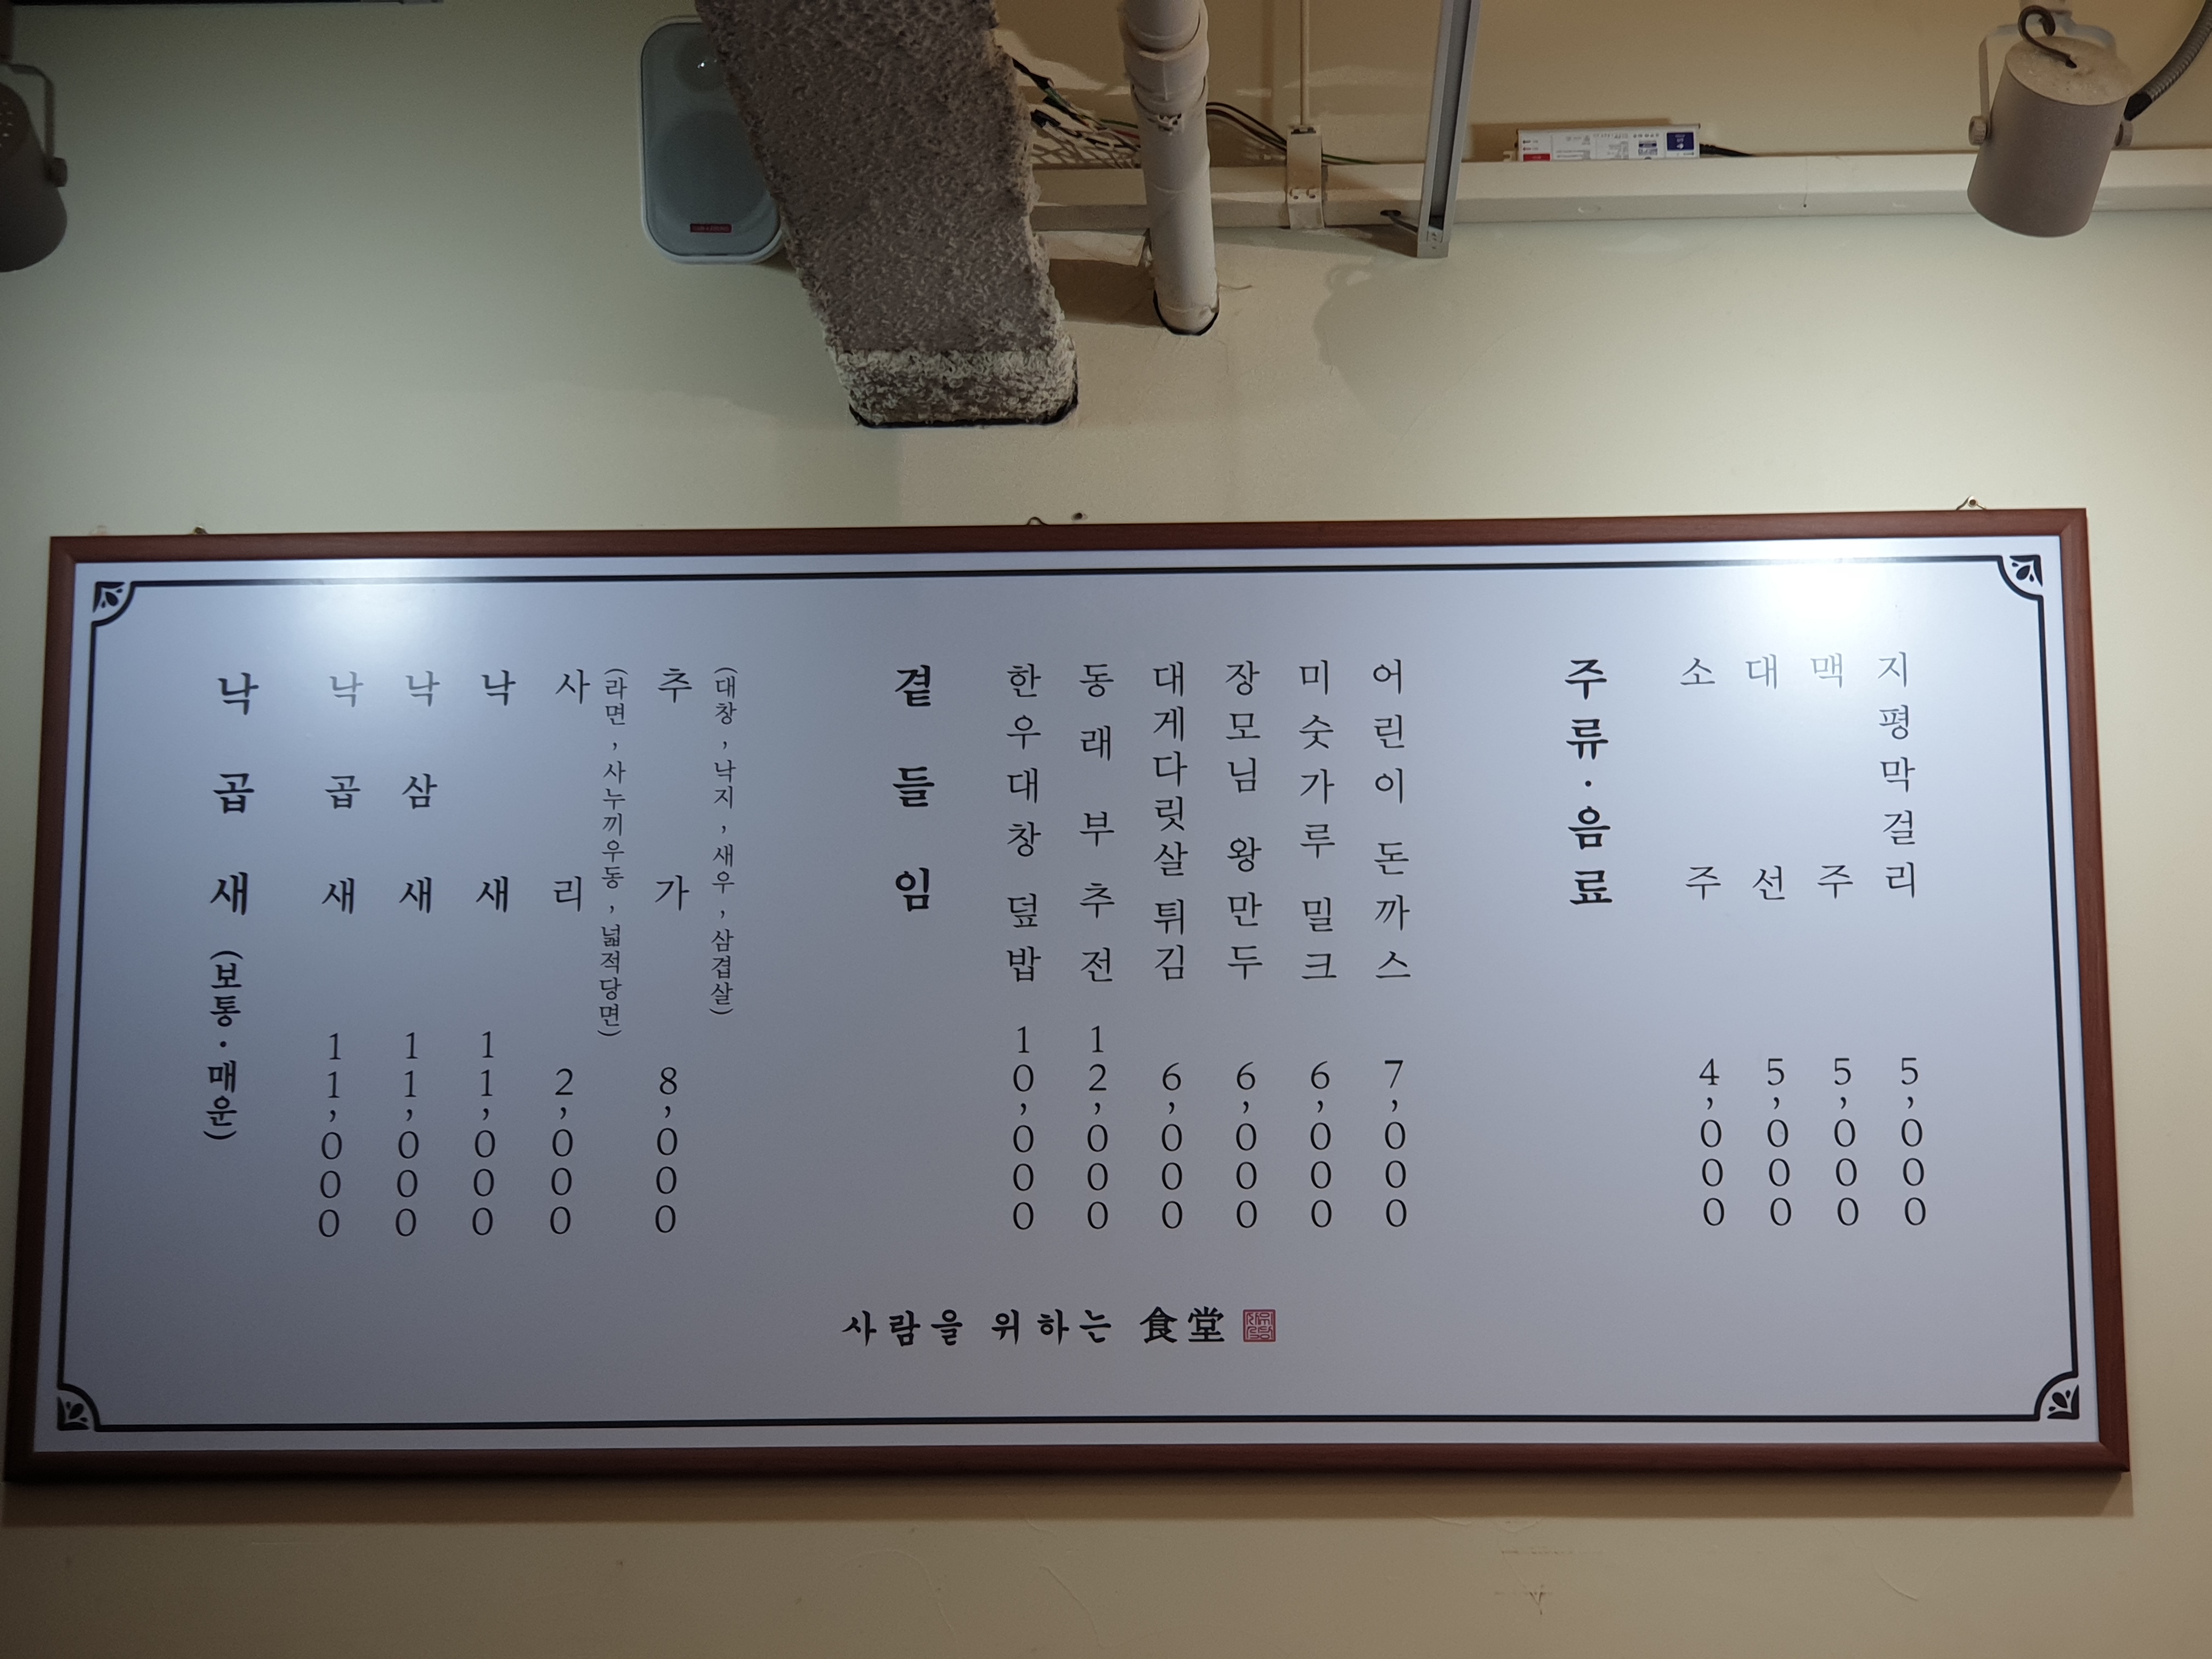 낙곱새 (보통·매운)
낙곱새 11,000
낙삼새 11,000
낙새 11,000
사리 2,000
(라면, 사누끼우동, 넓적당면)
추가 8,000
(대창, 낙지, 새우, 삼겹살)
곁들임
한우대창 덮밥 10,000
동래 부추전 12,000
대게다릿살 튀김 6,000
장모님 왕만두 6,000
미숫가루 밀크 6,000
어린이 돈까스 7,000
주류·음료
소주 4,000
대선 5,000
맥주 5,000
지평막걸리 5,000
사람을 위하는 食堂